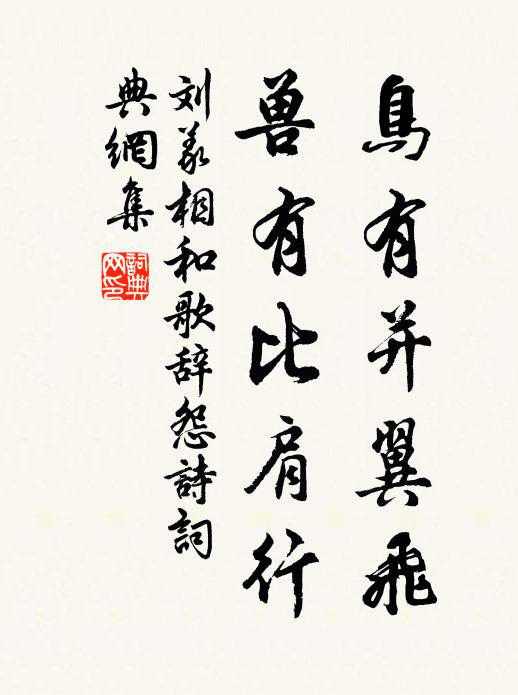 鳥有并翼飛
兽有比肩行
刘義相和歌辞怨詩詞
典網集
詞典网印